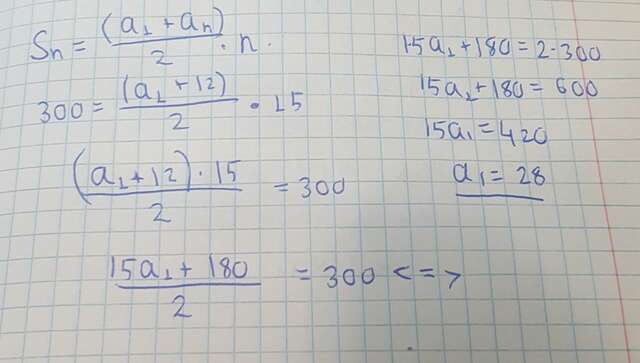 Sn = (a1 + an) / 2 · n.
300 = (a1 + 12) / 2 · 15
(a1 + 12) · 15 / 2 = 300
15a1 + 180 / 2 = 300 <=>
15a1 + 180 = 2 · 300
15a1 + 180 = 600
15a1 = 420
a1 = 28